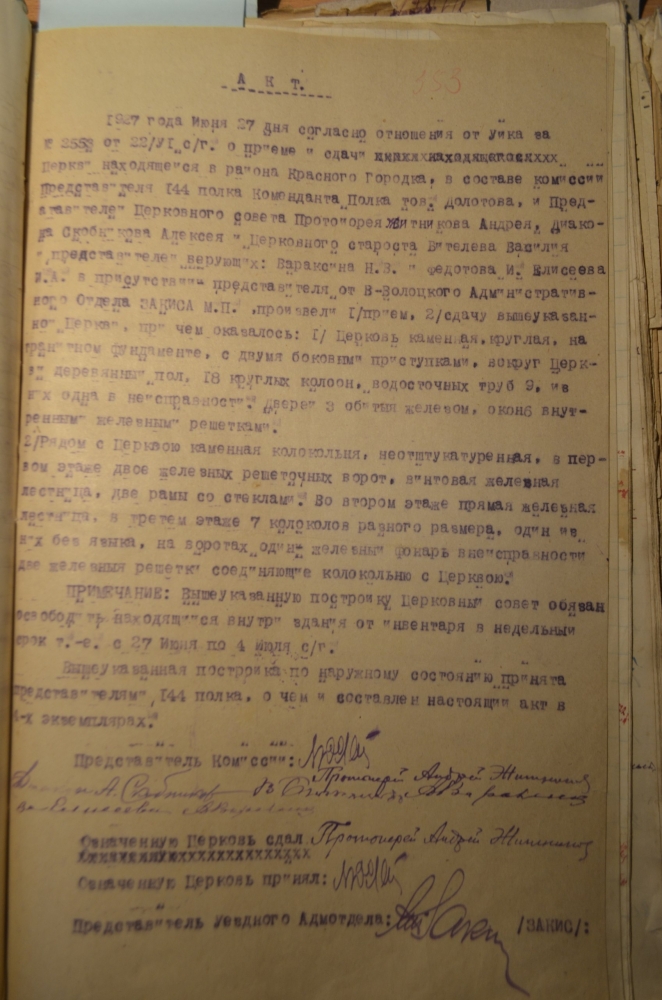 А К Т. 153
1927 года Июня 27 дня согласно отношения от Уика за
№ 2553 от 22/УІ с/г. о приеме и сдачи
Церкви находящейся в района Красного Городка, в составе комиссии
Представителя 144 полка Коменданта Полка тов. Долотова, и Пред-
ставителей Церковного совета Протоиорея Житникова Андрея, диако-
на Скобникова Алексея и Церковного староста Вителева Василия
и представителей верующих: Вараксина Н.В. и Федотова И. Елисеева
И.А. в присутствии представителя от В-Волоцкого Административ-
ного Отдела ЗАКИСА М.П. ,произвели 1/прием, 2/сдачу вышеуказан-
ной Церкви, при чем оказалось: 1/ Церковь каменная,круглая, на
гранитном фундаменте, с двумя боковыми приступками, вокруг Церк-
ви деревянный пол, 18 круглых колоон, водосточных труб 9, из
них одна в неисправности. дверей 3 обитыя железом, окон6 внут-
ренными железными решетками.
2/Рядом с Церквою каменная колокольня, неотштукатуренная, в пер-
вом этаже двое железных решеточных ворот, винтовая железная
лестница, две рамы со стеклами. Во втором этаже прямая железная
лестница, в третем этаже 7 колоколов разного размера, один из
них без языка, на воротах один железный фонарь внеисправности
две железныя решетки соединяющие колокольню с Церквою.
ПРИМЕЧАНИЕ: Вышеуказанную постройку Церковный совет обязан
освободить находящийся внутри здания от инвентаря в недельный
срок т.-е. с 27 Июня по 4 Июля с/г.
Вышеуказанная постройка по наружному состоянию принята
представителями 144 полка, о чем и составлен настоящий акт в
4-х экземплярах.
Представитель Комиссии:
Протоиерей Андрей Житников
Означенную Церковь сдал Протоиерей Андрей Житников
Означенную Церковь принял:
Представитель Уездного Адмотдела: Закис /ЗАКИС/: